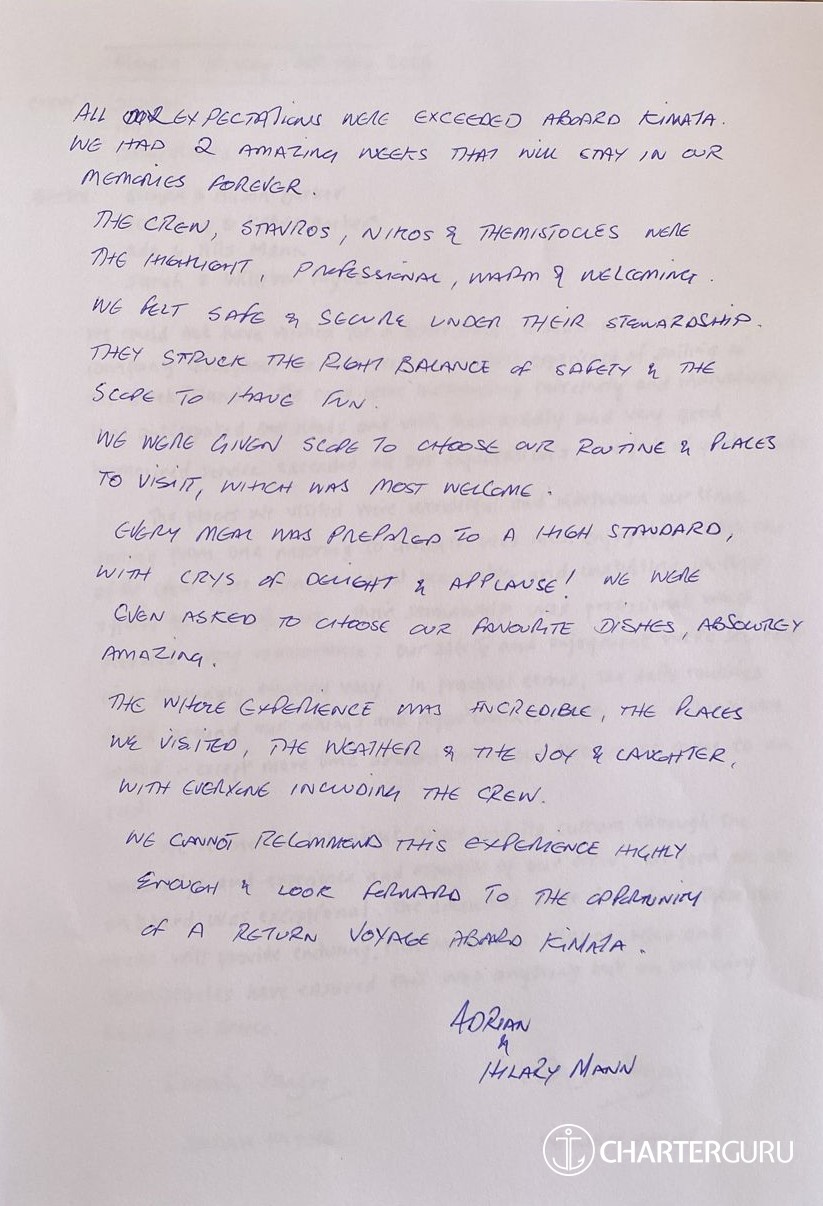 ALL OUR EXPECTATIONS WERE EXCEEDED ABOARD KIMATA.
WE HAD 2 AMAZING WEEKS THAT WILL STAY IN OUR
MEMORIES FOREVER.
THE CREW, STAVROS, NIKOS & THEMISTOCLES WERE
THE HIGHLIGHT, PROFESSIONAL, WARM & WELCOMING.
WE FELT SAFE & SECURE UNDER THEIR STEWARDSHIP.
THEY STRUCK THE RIGHT BALANCE OF SAFETY & THE
SCOPE TO HAVE FUN.
WE WERE GIVEN SCOPE TO CHOOSE OUR ROUTINE & PLACES
TO VISIT, WHICH WAS MOST WELCOME.
EVERY MEAL WAS PREPARED TO A HIGH STANDARD,
WITH CRYS OF DELIGHT & APPLAUSE! WE WERE
EVEN ASKED TO CHOOSE OUR FAVOURITE DISHES, ABSOLUREY
AMAZING.
THE WHOLE EXPERIENCE WAS INCREDIBLE, THE PLACES
WE VISITED, THE WEATHER & THE JOY & LAUGHTER,
WITH EVERYONE INCLUDING THE CREW.
WE CANNOT RECOMMEND THIS EXPERIENCE HIGHLY
ENOUGH & LOOK FORWARD TO THE OPPERTUNITY
OF A RETURN VOYAGE ABOARD KIMATA.
ADRIAN
&
HILARY MANN
CHARTERGURU